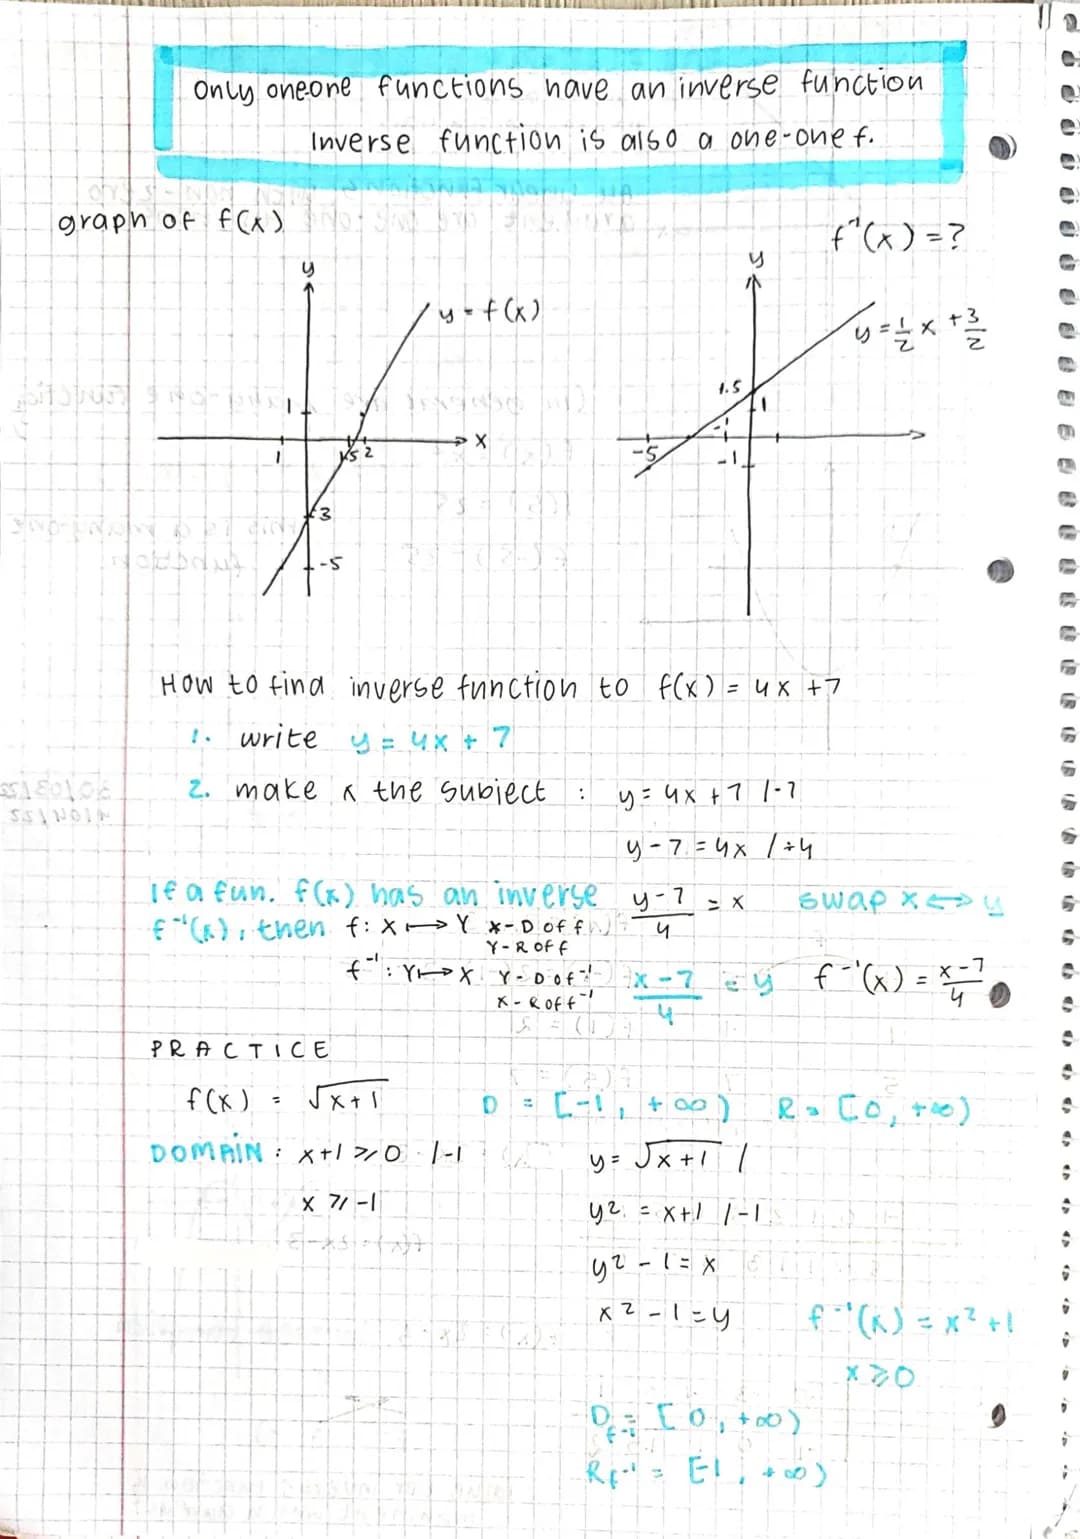 only one-one functions have an inverse function
Inverse function is also a one-one f.
graph of f(x)
f⁻¹(x) = ?
y
y
y = f(x)
y = 1/2 x + 3/2
1.5
1
1
x
-1
1
1.5 2
-5
-1
-3
-5
How to find inverse function to f(x) = 4x + 7
1. write y = 4x + 7
2. make x the subject : y = 4x + 7 /-7
y - 7 = 4x / ÷4
If a fun. f(x) has an inverse
(y-7)/4 = x swap x ⟷ y
f⁻¹(x), then f: X ⟼ Y X - D of f
Y - R of f
f⁻¹: Y ⟼ X Y - D of⁻¹
X - R of f⁻¹
(x-7)/4 = y f⁻¹(x) = (x-7)/4
PRACTICE
f(x) = √x+1 D = [-1, +∞) R = [0, +∞)
DOMAIN : x+1 ≥ 0 /-1 y = √x+1 /
x ≥ -1 y² = x+1 /-1
y² - 1 = x
x² - 1 = y f⁻¹(x) = x² + 1
x ≥ 0
D f⁻¹ = [0, +∞)
R f⁻¹ = [-1, +∞)